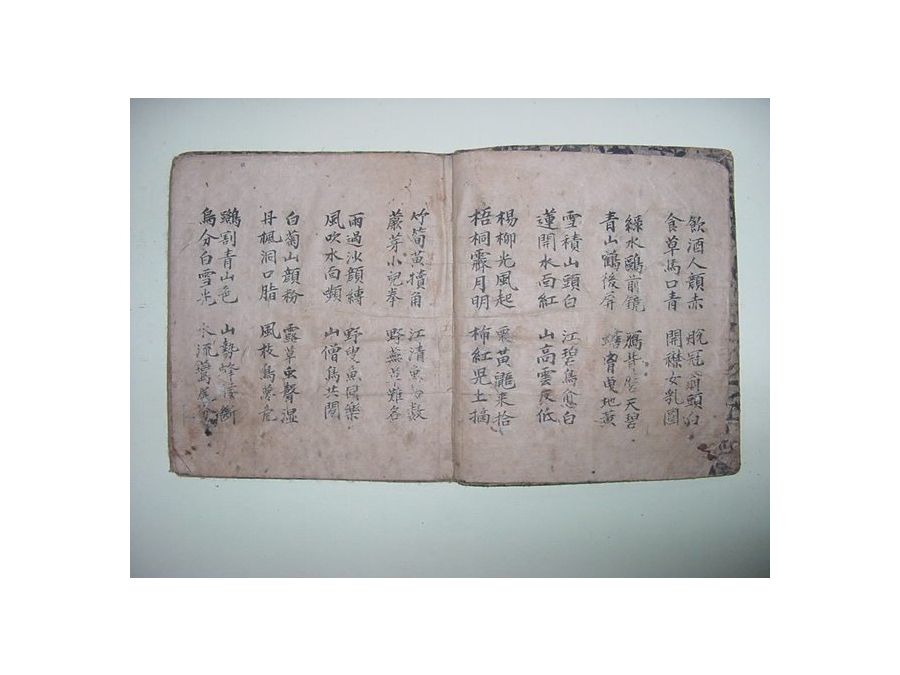 飲酒人顔赤 脫冠翁頭白
食草馬口青 開襟女乳圓
綠水鷗前鏡 天碧
青山鶴後屏 地黃
雪積山頭白 江碧鳥愈白
蓮開水面紅 山高雲反低
楊柳光風起 栗黃鼯來拾
梧桐霽月明 柿紅兒上摘
竹筍黃犢角 江清魚可數
蕨芽小兒拳 野蕪草難名
雨過沙顔縛 野叟魚同樂
風吹水面頻 山僧鳥共閒
白菊山顔粉 露草虫聲濕
丹楓洞口脂 風枝鳥夢危
割青山色 山勢蜂腰斷
烏分白雪光 水流